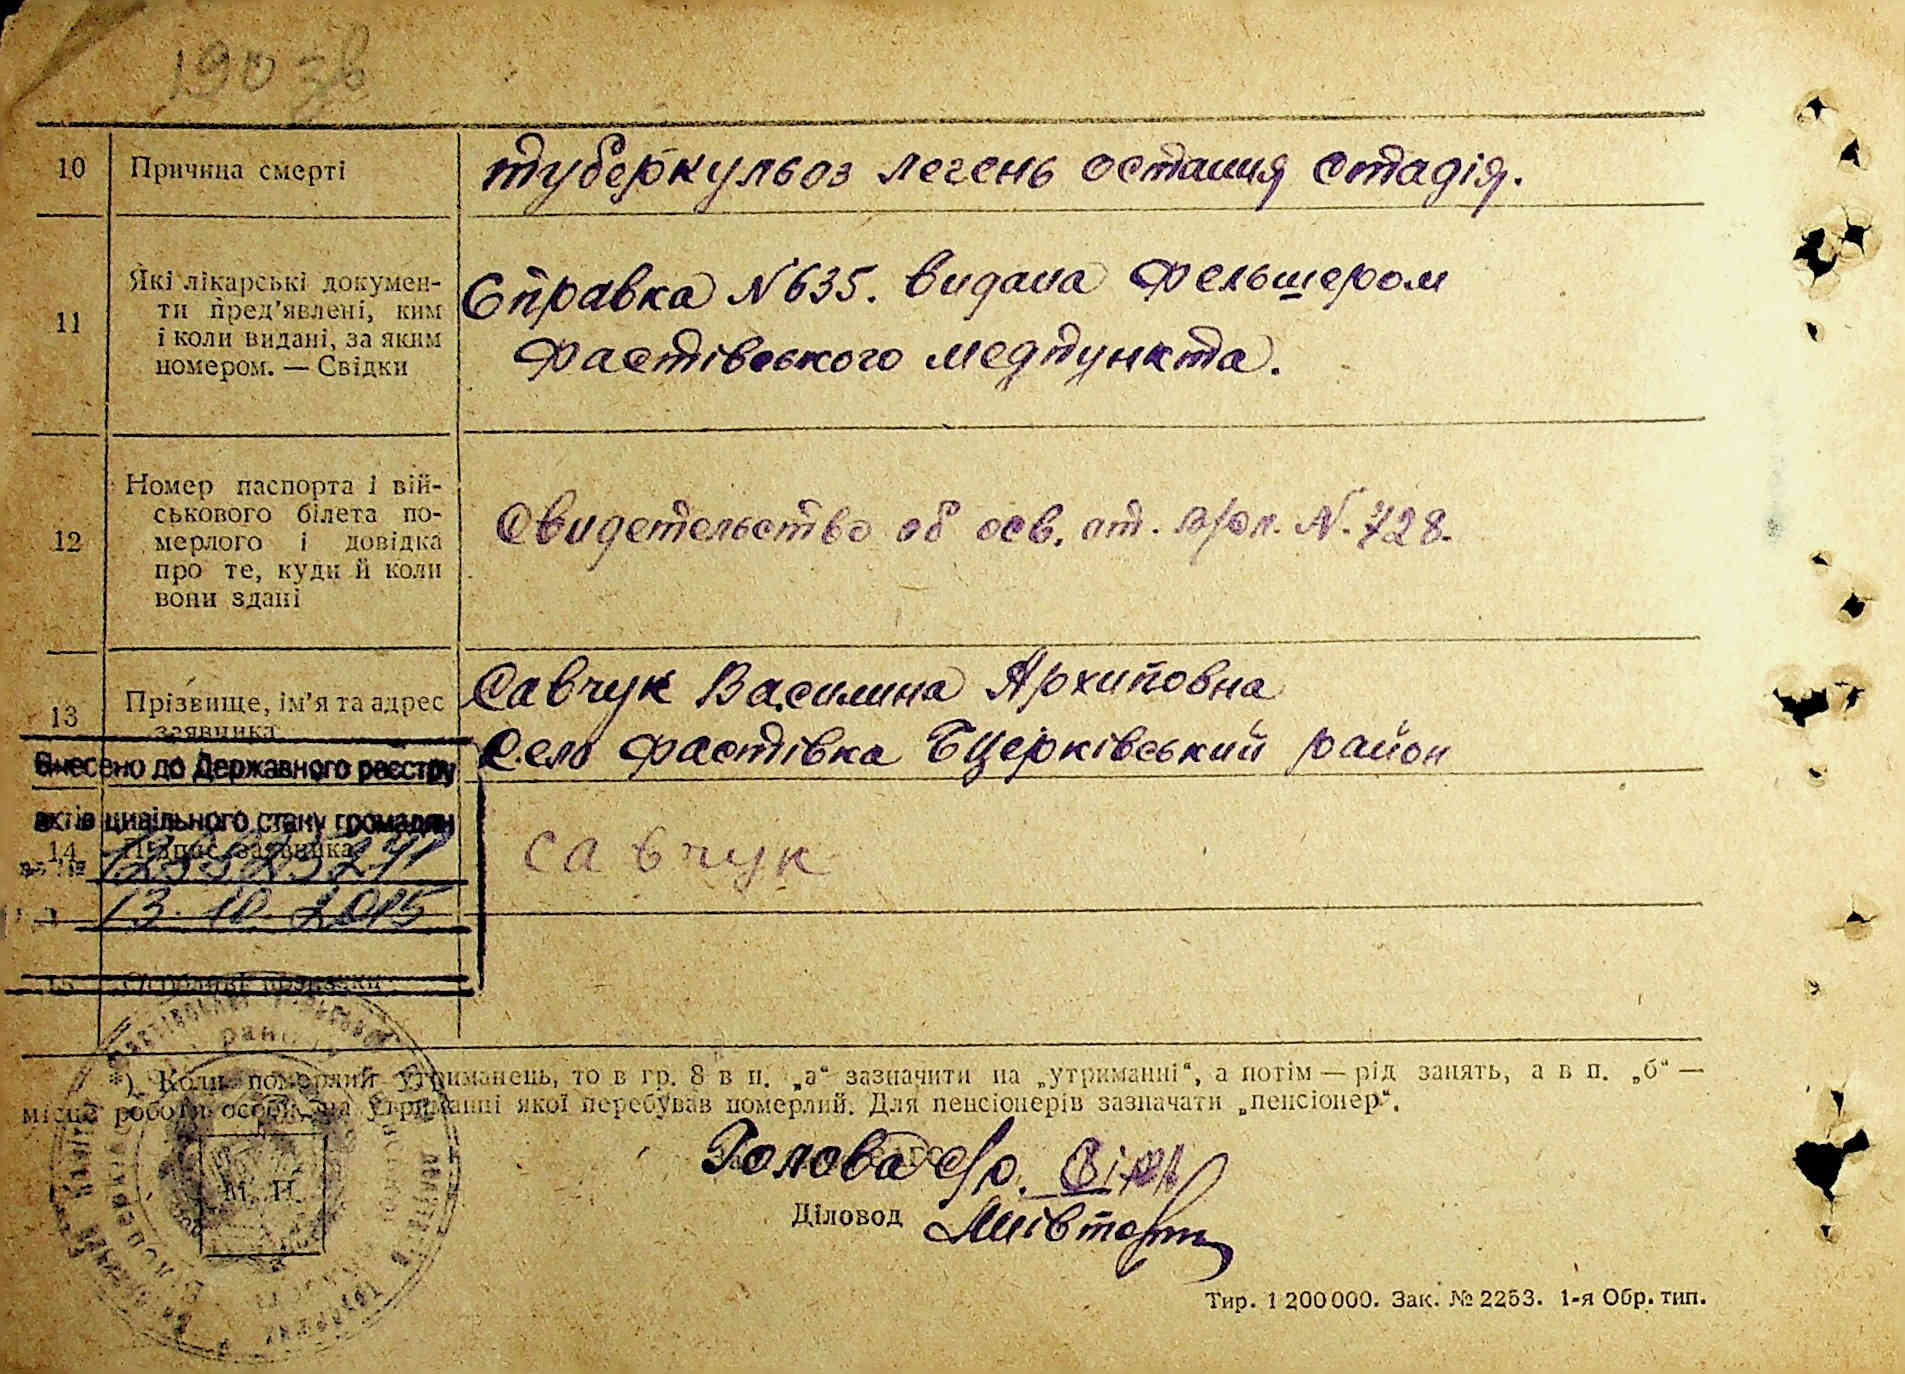 190 зв
10 Причина смерті туберкульоз легень остання стадія.
11 Які лікарські докумен-
ти пред'явлені, ким
і коли видані, за яким
номером. — Свідки
Справка №635. видана фельшером
Фастівського медпункта.
12 Номер паспорта і вій-
ськового білета по-
мерлого і довідка
про те, куди й коли
вони здані
Свидетельство об осв. от. №. 728.
13 Прізвище, ім'я та адрес
заявника
Савчук Василина Архиповна
Село Фастівка Бцерківський район
Внесено до Державного реєстру
актів цивільного стану громадян
14 Підпис заявника
Савчук
13.10.2015
15 Особливі
*) Коли померлий утриманець, то в гр. 8 в п. „а“ зазначити на „утриманні“, а потім — рід занять, а в п. „б“ —
місце роботи особи, на утриманні якої перебував померлий. Для пенсіонерів зазначати „пенсіонер“.
Голова с/р.
Діловод
М. П.
Тир. 1 200 000. Зак. № 2253. 1-я Обр. тип.